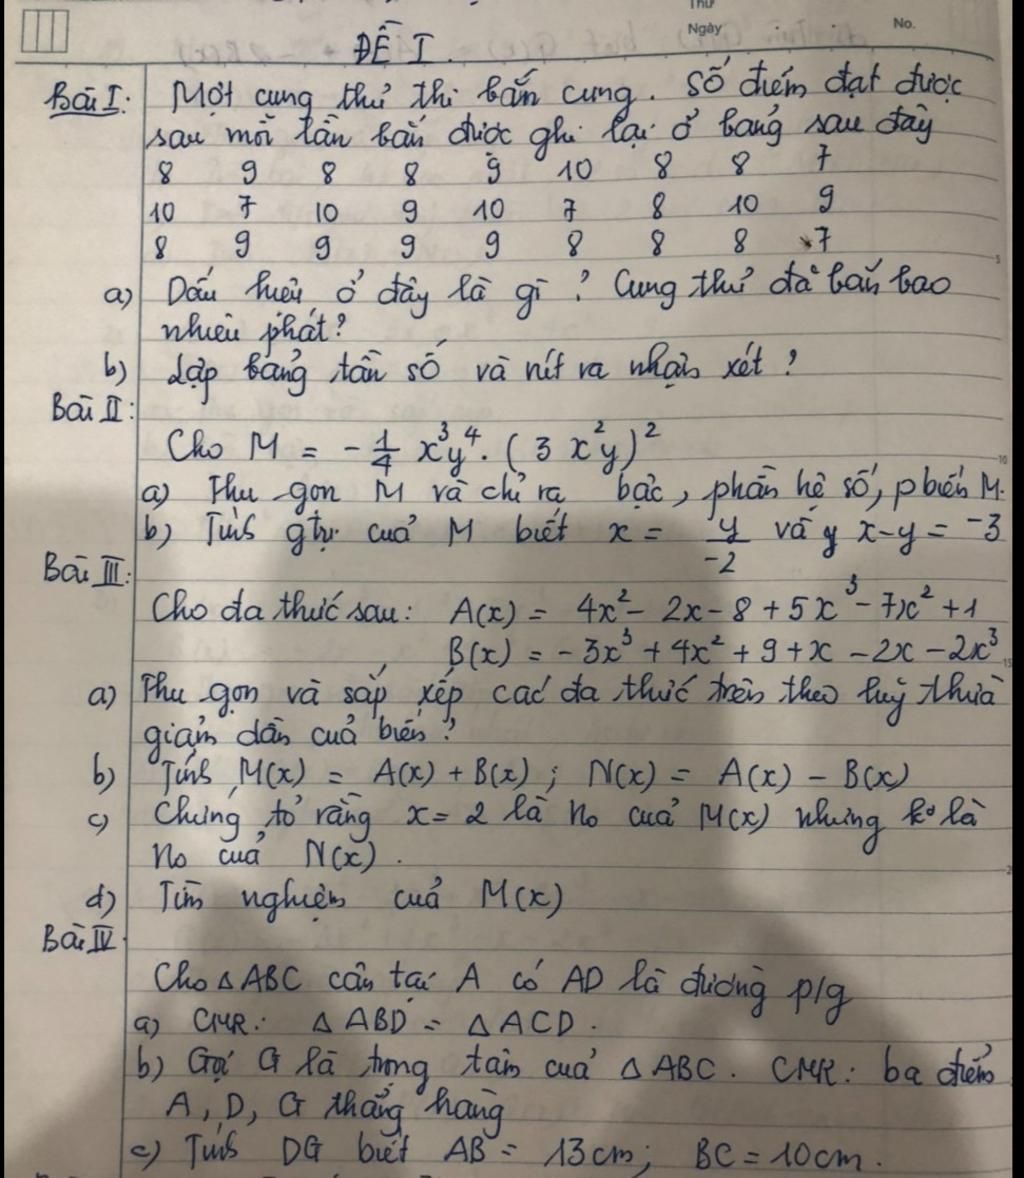 Thứ
Ngày
No.
ĐỀ I.
Bài I: Một cung thủ thi bắn cung. Số điểm đạt được
sau mỗi lần bắn được ghi lại ở bảng sau đây
8 9 8 8 9 10 8 8 7
10 7 10 9 10 7 8 10 9
8 9 9 9 9 8 8 8 7
a) Dấu hiệu ở đây là gì? Cung thủ đã bắn bao
nhiêu phát?
b) Lập bảng tần số và rút ra nhận xét?
Bài II:
Cho M = -1/4 x³y⁴. (3x²y)²
a) Thu gọn M và chỉ ra bậc, phần hệ số, p biến M.
b) Tính gtrị của M biết x = y/-2 và y x-y = -3
Bài III:
Cho đa thức sau: A(x) = 4x² - 2x - 8 + 5x³ - 7x² + 1
B(x) = -3x³ + 4x² + 9 + x - 2x - 2x³
a) Thu gọn và sắp xếp các đa thức trên theo luỹ thừa
giảm dần của biến?
b) Tính M(x) = A(x) + B(x); N(x) = A(x) - B(x)
c) Chứng tỏ rằng x = 2 là no của M(x) nhưng ko là
no của N(x).
d) Tìm nghiệm của M(x)
Bài IV
Cho △ABC cân tại A có AD là đường p/g
a) CMR: △ABD = △ACD.
b) Gọi G là trọng tâm của △ABC. CMR: ba điểm
A, D, G thẳng hàng
c) Tính DG biết AB = 13cm; BC = 10cm.